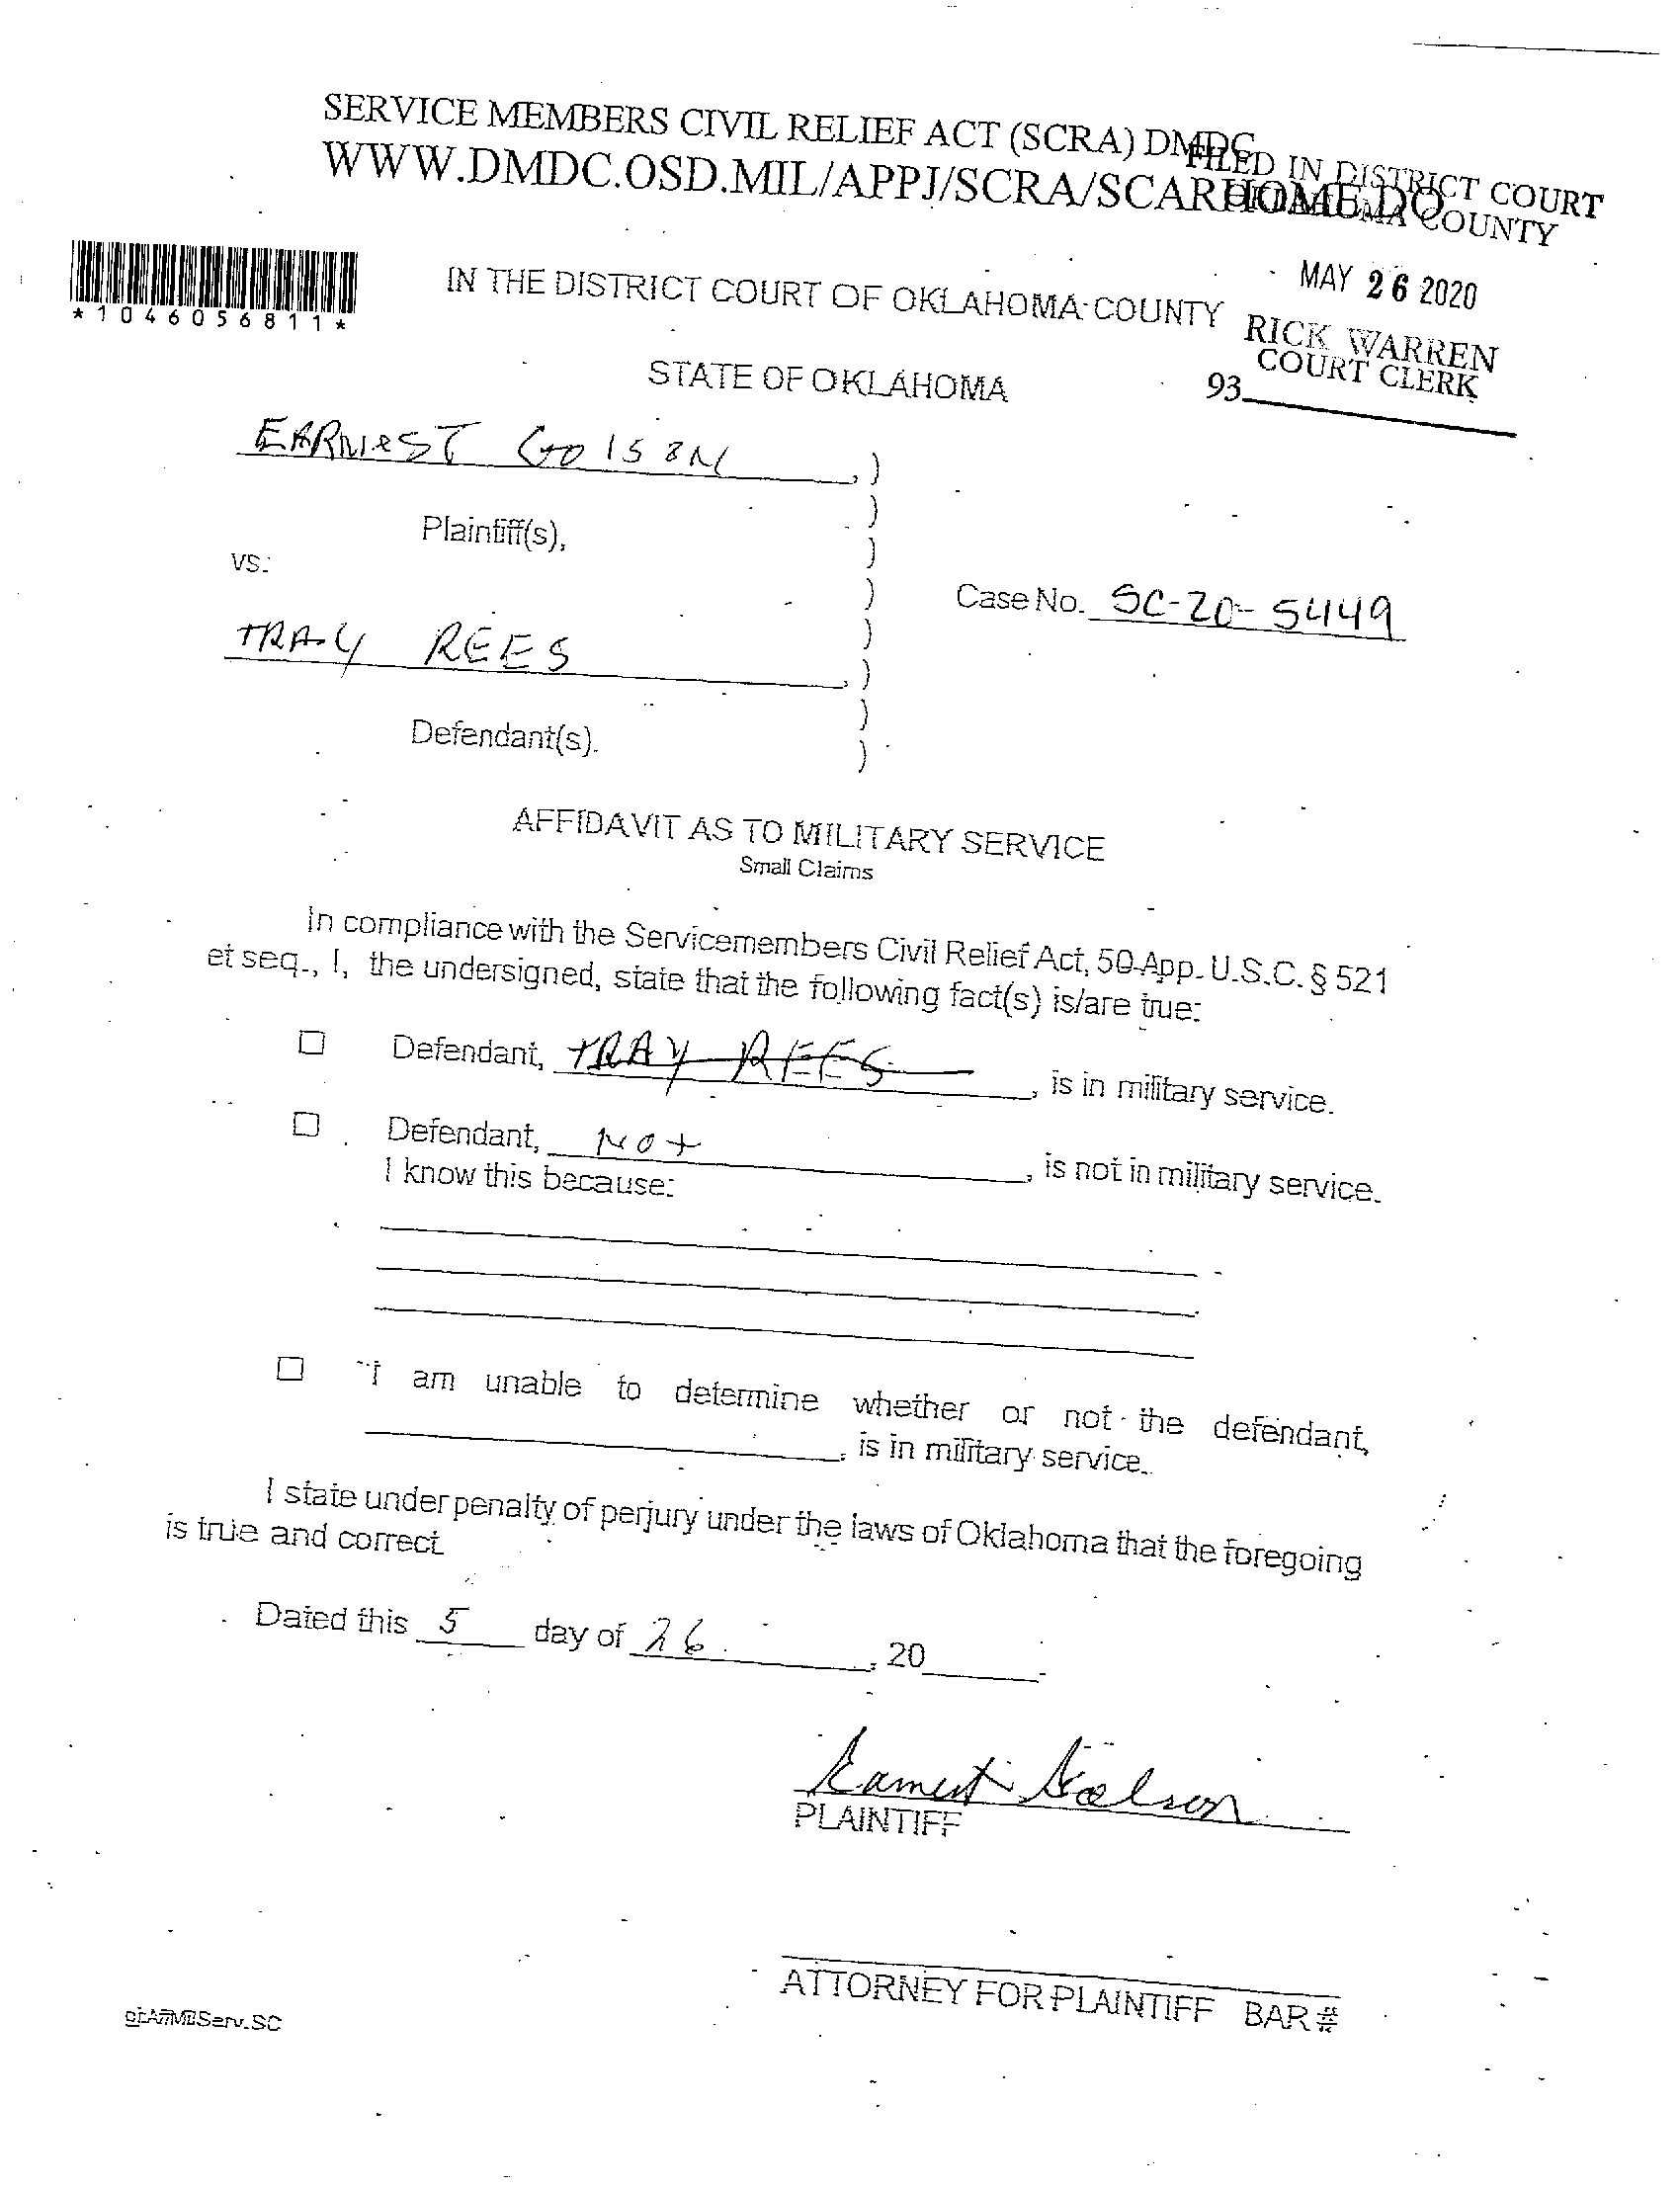 SERVICE MEMBERS CIVIL RELIEF ACT (SCRA) DMDC
WWW.DMDC.OSD.MIL/APPJ/SCRA/SCARHOME.DO
FILED IN DISTRICT COURT
OKLAHOMA COUNTY
MAY 26 2020
RICK WARREN
COURT CLERK
93
*1046056811*
IN THE DISTRICT COURT OF OKLAHOMA COUNTY
STATE OF OKLAHOMA
EARNIEST ,)
Plaintiff(s),
vs.
Case No. SC-20-5449
TRAY REES ,)
Defendant(s).
AFFIDAVIT AS TO MILITARY SERVICE
Small Claims
In compliance with the Servicemembers Civil Relief Act, 50 App. U.S.C. § 521
et seq., I, the undersigned, state that the following fact(s) is/are true:
☐ Defendant, TRAY REES, is in military service.
☐ Defendant, NOT, is not in military service.
I know this because:
☐ I am unable to determine whether or not the defendant,
, is in military service.
I state under penalty of perjury under the laws of Oklahoma that the foregoing
is true and correct.
Dated this 5 day of 26, 20
PLAINTIFF
ATTORNEY FOR PLAINTIFF BAR #